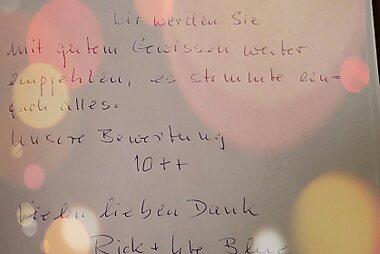 Wir werden Sie
mit gutem Gewissen weiter
empfehlen, es stimmte ein=
fach alles.
Unsere Bewertung
10++
Vielen lieben Dank
Rick +